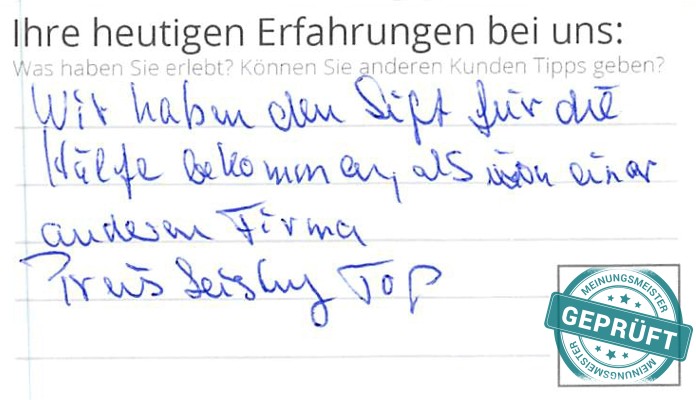 Ihre heutigen Erfahrungen bei uns:
Was haben Sie erlebt? Können Sie anderen Kunden Tipps geben?
Wir haben den Lift für die
Hälfe bekommen, als von einer
anderen Firma
Preis Leistug Top
MEINUNGSMEISTER
GEPRÜFT
MEINUNGSMEISTER